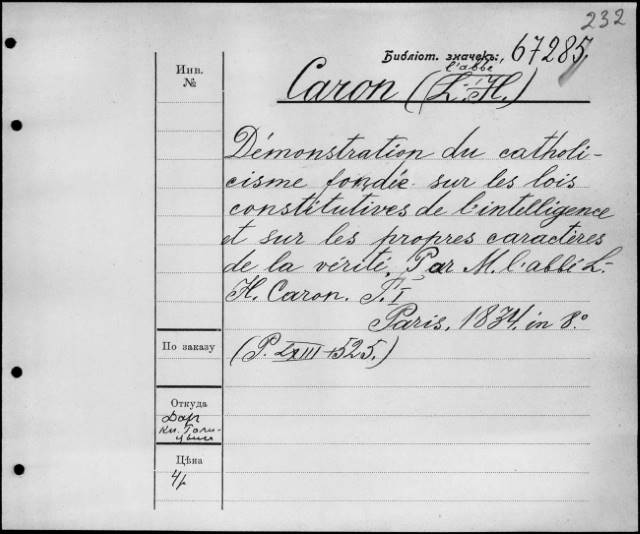 232
Библіот. значекъ: 67285
Инв.
№
l'abbé
Caron (L. H.)
Démonstration du catholi-
cisme fondée sur les lois
constitutives de l'intelligence
et sur les propres caractères
de la vérité. Par M. l'abbé L.
H. Caron. T. I
Paris, 1834. in 8°
По заказу
(P. LXIII + 525.)
Откуда
Дар
кн. Голи-
цына
Цѣна